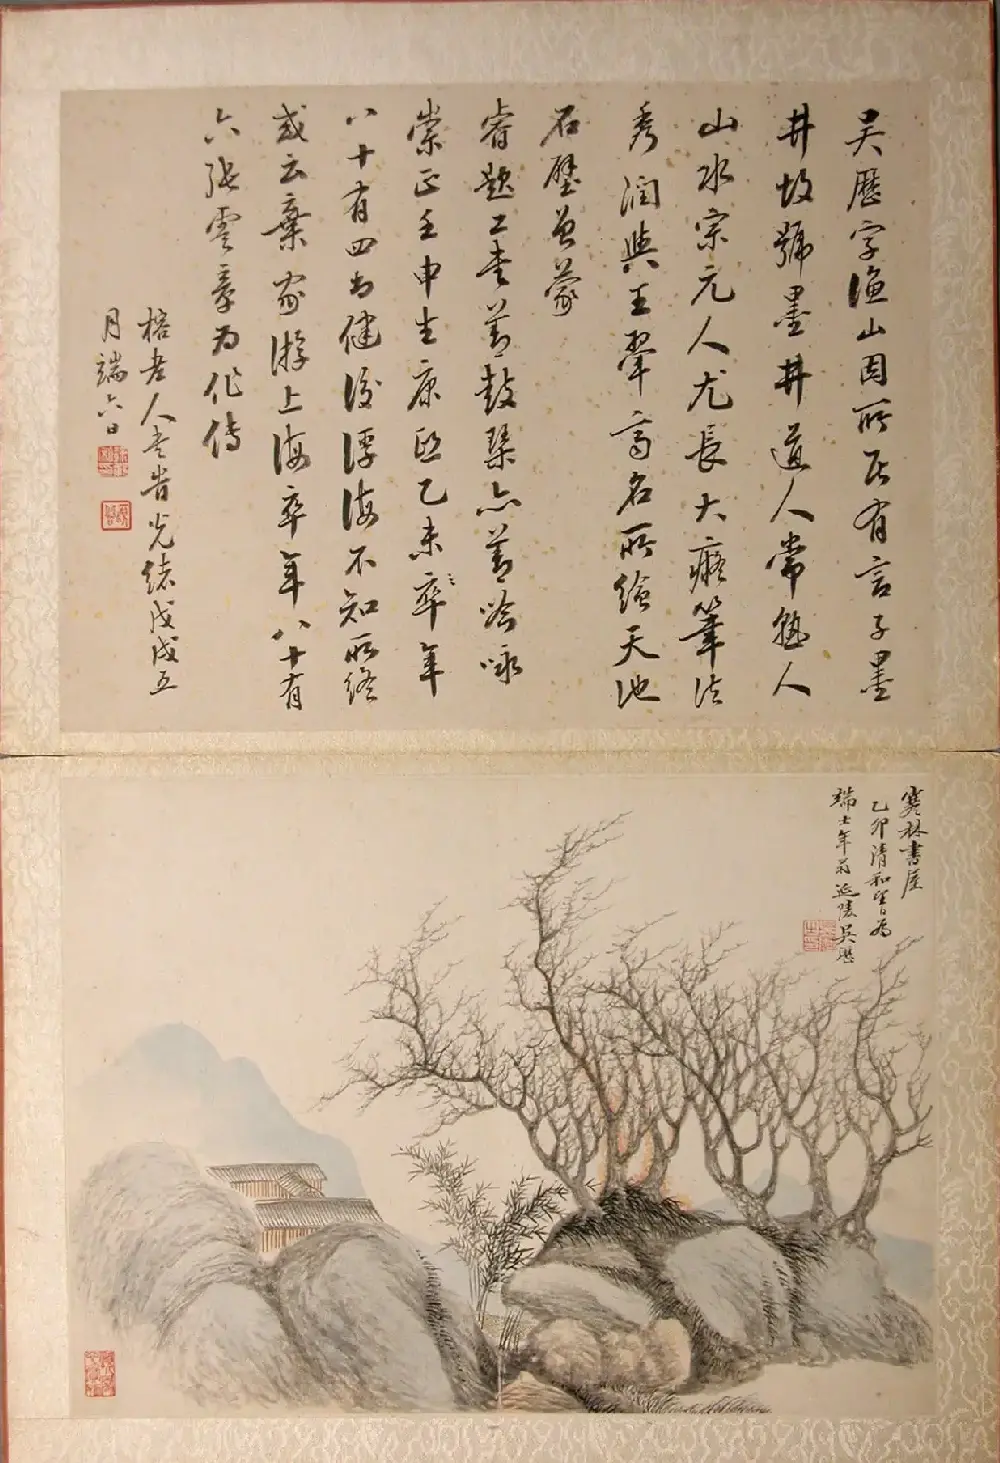 吴歷字漁山因所居有言子墨
井故號墨井道人常熟人
山水宗元人尤長大癡筆法
秀潤與王翬齊名所繪天池
石壁曾蒙
睿題工書善鼓琴亦善吟咏
崇正壬申生康熙乙未卒年
八十有四尚健後浮海不知所終
或云棄家游上海卒年八十有
六張雲章为作傳
榕老人書昔光緒戊戌五
月端六日
寒林書屋
乙卯清和望日為
端士年翁 延陵吴歷